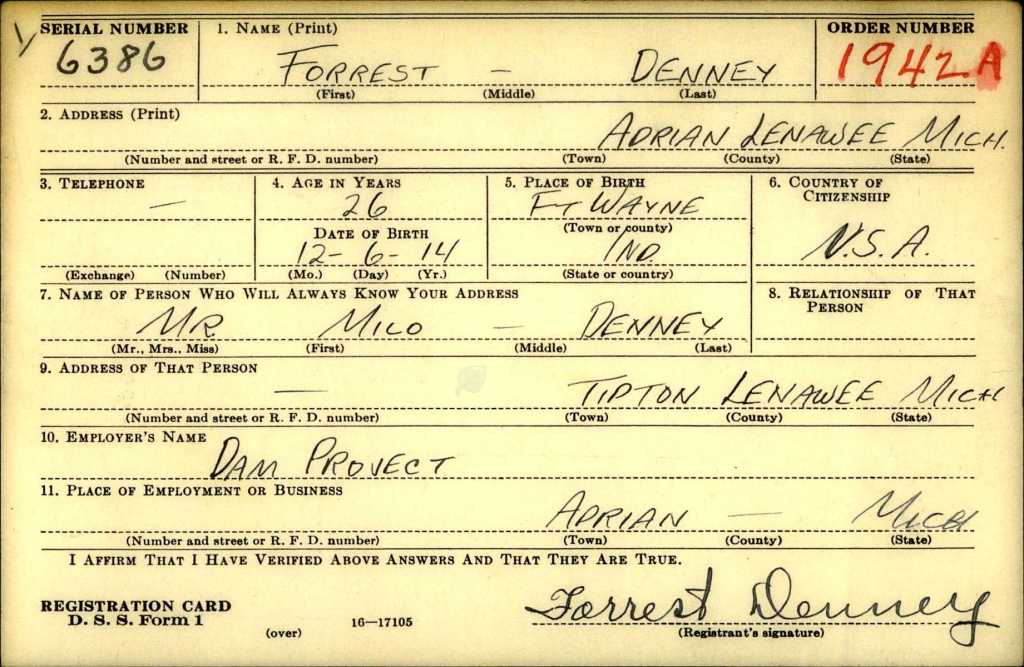 SERIAL NUMBER 1. NAME (Print) ORDER NUMBER
6386 FORREST – DENNEY 1942 A
(First) (Middle) (Last)
2. ADDRESS (Print)
ADRIAN LENAWEE MICH.
(Number and street or R. F. D. number) (Town) (County) (State)
3. TELEPHONE 4. AGE IN YEARS 5. PLACE OF BIRTH 6. COUNTRY OF CITIZENSHIP
– 26 FT WAYNE
DATE OF BIRTH (Town or county) U.S.A.
12-6-14 IND.
(Exchange) (Number) (Mo.) (Day) (Yr.) (State or country)
7. NAME OF PERSON WHO WILL ALWAYS KNOW YOUR ADDRESS 8. RELATIONSHIP OF THAT PERSON
MR. MILO – DENNEY
(Mr., Mrs., Miss) (First) (Middle) (Last)
9. ADDRESS OF THAT PERSON
– TIPTON LENAWEE MICH
(Number and street or R. F. D. number) (Town) (County) (State)
10. EMPLOYER'S NAME
DAM PROJECT
11. PLACE OF EMPLOYMENT OR BUSINESS
ADRIAN – MICH
(Number and street or R. F. D. number) (Town) (County) (State)
I AFFIRM THAT I HAVE VERIFIED ABOVE ANSWERS AND THAT THEY ARE TRUE.
REGISTRATION CARD Forrest Denney
D. S. S. Form 1 (over) 16—17105 (Registrant's signature)